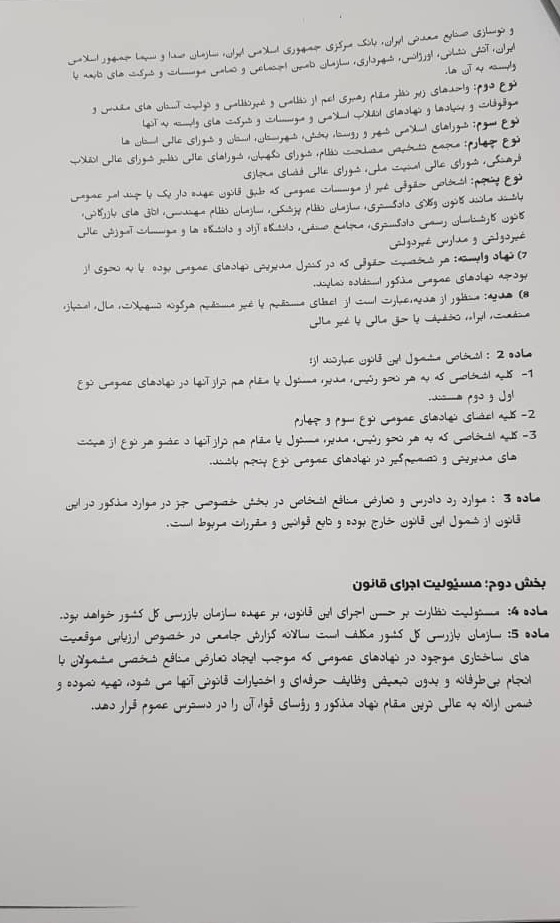 و نوسازی صنایع معدنی ایران، بانک مرکزی جمهوری اسلامی ایران، سازمان صدا و سیما جمهور اسلامی
ایران، آتش نشانی، اورژانس، شهرداری، سازمان تامین اجتماعی و تمامی موسسات و شرکت های تابعه یا
وابسته به آن ها.
نوع دوم: واحدهای زیر نظر مقام رهبری اعم از نظامی و غیرنظامی و تولیت آستان های مقدس و
موقوفات و بنیادها و نهادهای انقلاب اسلامی و موسسات و شرکت های وابسته به آنها
نوع سوم: شوراهای اسلامی شهر و روستا، بخش، شهرستان، استان و شورای عالی استان ها
نوع چهارم: مجمع تشخیص مصلحت نظام، شورای نگهبان، شوراهای عالی نظیر شورای عالی انقلاب
فرهنگی، شورای عالی امنیت ملی، شورای عالی فضای مجازی
نوع پنجم: اشخاص حقوقی غیر از موسسات عمومی که طبق قانون عهده دار یک یا چند امر عمومی
باشند مانند کانون وکلای دادگستری، سازمان نظام پزشکی، سازمان نظام مهندسی، اتاق های بازرگانی،
کانون کارشناسان رسمی دادگستری، مجامع صنفی، دانشگاه آزاد و دانشگاه ها و موسسات آموزش عالی
غیردولتی و مدارس غیردولتی
7) نهاد وابسته: هر شخصیت حقوقی که در کنترل مدیریتی نهادهای عمومی بوده یا به نحوی از
بودجه نهادهای عمومی مذکور استفاده نمایند.
8) هدیه: منظور از هدیه،عبارت است از اعطای مستقیم یا غیر مستقیم هرگونه تسهیلات، مال، امتیاز،
منفعت، ابراء، تخفیف یا حق مالی یا غیر مالی
ماده 2 : اشخاص مشمول این قانون عبارتند از:
1- کلیه اشخاصی که به هر نحو رئیس، مدیر، مسئول یا مقام هم تراز آنها در نهادهای عمومی نوع
اول و دوم هستند.
2- کلیه اعضای نهادهای عمومی نوع سوم و چهارم
3- کلیه اشخاصی که به هر نحو رئیس، مدیر، مسئول یا مقام هم تراز آنها د عضو هر نوع از هیئت
های مدیریتی و تصمیم‌گیر در نهادهای عمومی نوع پنجم باشند.
ماده 3 : موارد رد دادرس و تعارض منافع اشخاص در بخش خصوصی جز در موارد مذکور در این
قانون از شمول این قانون خارج بوده و تابع قوانین و مقررات مربوط است.
بخش دوم: مسئولیت اجرای قانون
ماده 4: مسئولیت نظارت بر حسن اجرای این قانون، بر عهده سازمان بازرسی کل کشور خواهد بود.
ماده 5: سازمان بازرسی کل کشور مکلف است سالانه گزارش جامعی در خصوص ارزیابی موقعیت
های ساختاری موجود در نهادهای عمومی که موجب ایجاد تعارض منافع شخصی مشمولان با
انجام بی‌طرفانه و بدون تبعیض وظایف حرفه‌ای و اختیارات قانونی آنها می شود، تهیه نموده و
ضمن ارائه به عالی ترین مقام نهاد مذکور و رؤسای قوا، آن را در دسترس عموم قرار دهد.